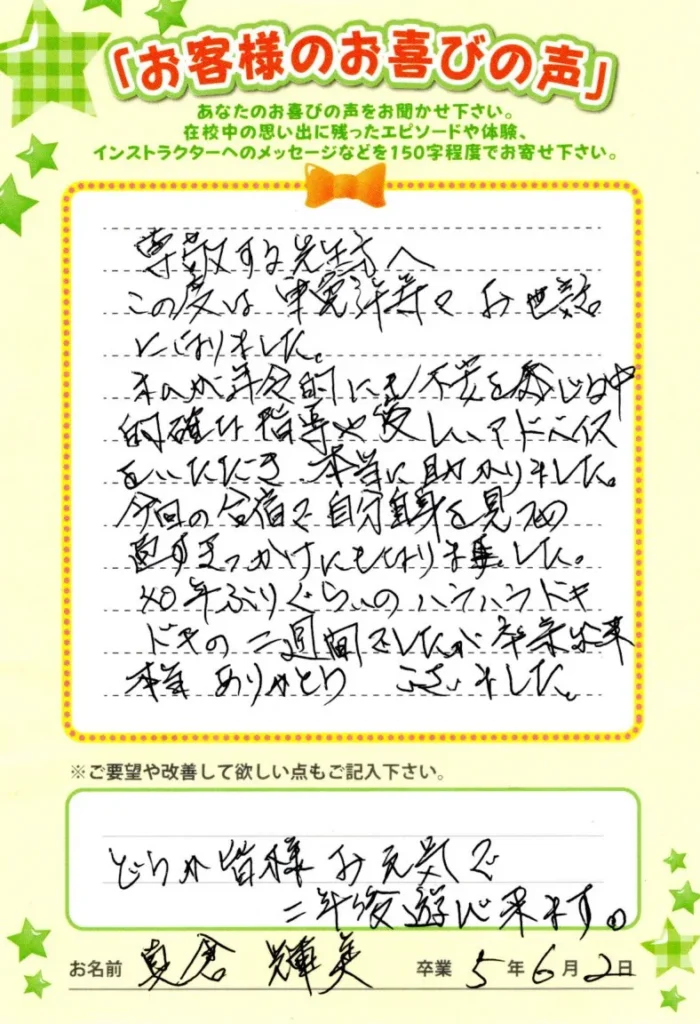 「お客様のお喜びの声」
あなたのお喜びの声をお聞かせ下さい。
在校中の思い出に残ったエピソードや体験、
インストラクターへのメッセージなどを150字程度でお寄せ下さい。
尊敬する先生方へ
この度は 免許等々 お世話
になりました。
年令的にも不安を感じる中
的確な指導や優しいアドバイス
をいただき、本当に助かりました。
今回の合宿で自分自身を見つめ
直すきっかけにもなりました。
40年ぶりぐらいのハラハラドキ
ドキの二週間でしたが卒業出来
本当ありがとうございました。
※ご要望や改善して欲しい点もご記入下さい。
どうか皆様お元気で
二年後遊びに来ます。
お名前 真倉 輝美 卒業 5年6月2日